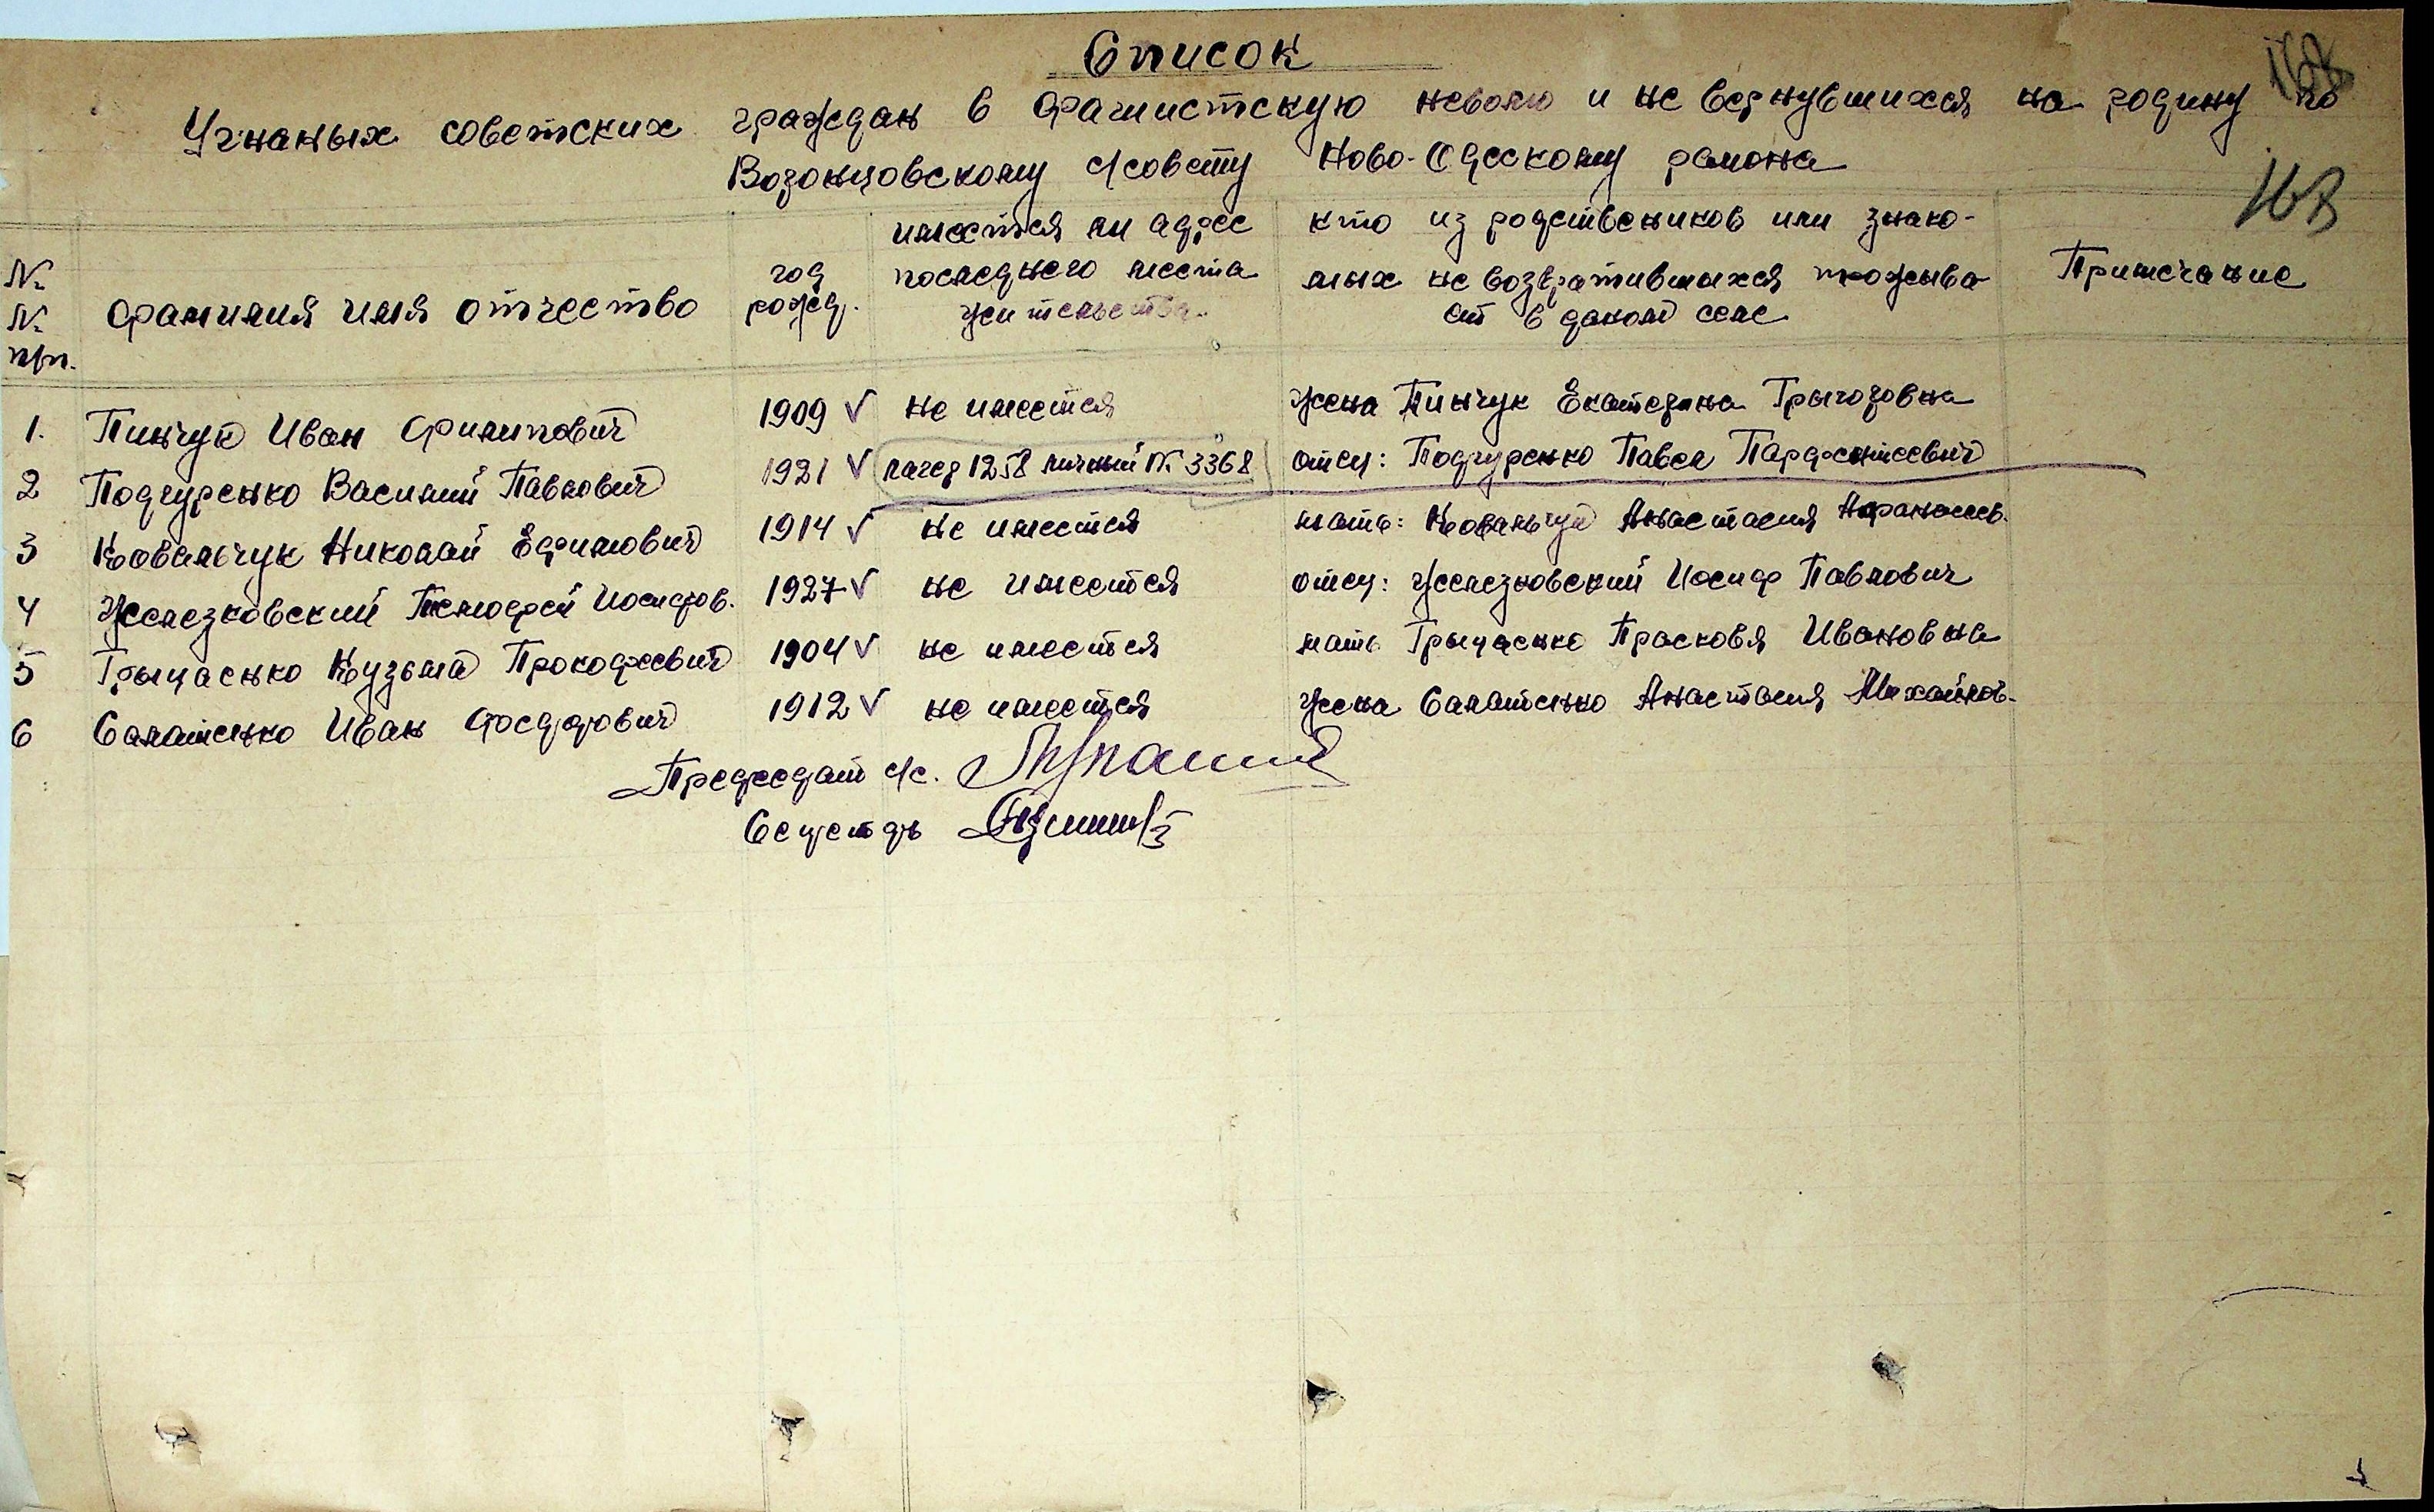 Список
Угнаных советских граждан в фашистскую неволю и не вернувшихся на родину по
Воронцовскому с/совету Ново-Одесскому района
168
№ № п/п.
фамилия имя отчество
год рожд.
имеется ли адрес
последнего места
жительства
кто из родствеников или знако-
мых не возвратившихся прожыва
ет в даном селе
Примечание
1. Пинчук Иван Филипович 1909 √ не имеется жена Пинчук Екатерина Грыгоровна
2 Подгуренко Василий Павлович 1921 √ лагер 1258 личный № 3368 отец: Подгуренко Павел Парфентеевич
3 Ковальчук Николай Ефимович 1914 √ не имеется мать: Ковальчук Анастасия Афанасьев.
4 Железковский Тимофей Иосифов. 1927 √ не имеется отец: Железковский Иосиф Павлович
5 Грыцаенко Кузьма Прокофеевич 1904 √ не имеется мать Грыцаенко Прасковя Ивановна
6 Саматенко Иван Фосдорович 1912 √ не имеется жена Саматенко Анастасия Михайлов.
Председат с/с.
Секретарь